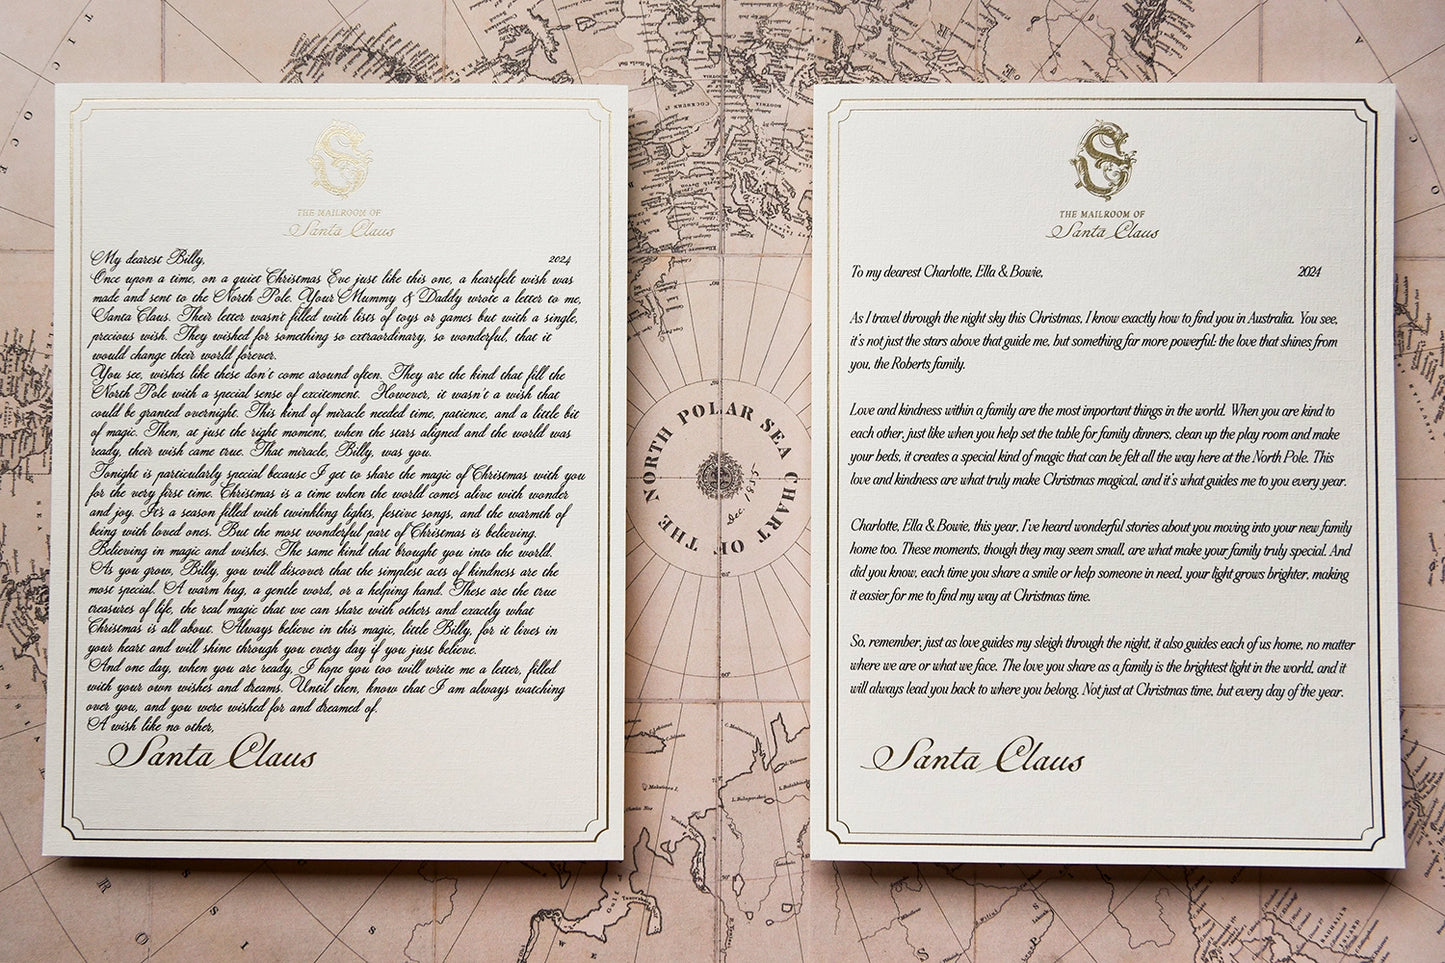 THE MAILROOM OF
Santa Claus
My dearest Billy,
2024
Once upon a time, on a quiet Christmas Eve just like this one, a heartfelt wish was
made and sent to the North Pole. Your Mummy & Daddy wrote a letter to me,
Santa Claus. Their letter wasn't filled with lists of toys or games but with a single,
precious wish. They wished for something so extraordinary, so wonderful, that it
would change their world forever.
You see, wishes like these don't come around often. They are the kind that fill the
North Pole with a special sense of excitement. However, it wasn't a wish that
could be granted overnight. This kind of miracle needed time, patience, and a little bit
of magic. Then, at just the right moment, when the stars aligned and the world was
ready, their wish came true. That miracle, Billy, was you.
Tonight is particularly special because I get to share the magic of Christmas with you
for the very first time. Christmas is a time when the world comes alive with wonder
and joy. It's a season filled with twinkling lights, festive songs, and the warmth of
being with loved ones. But the most wonderful part of Christmas is believing.
Believing in magic and wishes. The same kind that brought you into the world.
As you grow, Billy, you will discover that the simplest acts of kindness are the
most special. A warm hug, a gentle word, or a helping hand. These are the true
treasures of life, the real magic that we can share with others and exactly what
Christmas is all about. Always believe in this magic, little Billy, for it lives in
your heart and will shine through you every day if you just believe.
And one day, when you are ready, I hope you too will write me a letter, filled
with your own wishes and dreams. Until then, know that I am always watching
over you, and you were wished for and dreamed of.
A wish like no other,
Santa Claus
CHART OF THE NORTH POLAR SEA
Dec. 1855
THE MAILROOM OF
Santa Claus
To my dearest Charlotte, Ella & Bowie,
2024
As I travel through the night sky this Christmas, I know exactly how to find you in Australia. You see,
it's not just the stars above that guide me, but something far more powerful: the love that shines from
you, the Roberts family.
Love and kindness within a family are the most important things in the world. When you are kind to
each other, just like when you help set the table for family dinners, clean up the play room and make
your beds, it creates a special kind of magic that can be felt all the way here at the North Pole. This
love and kindness are what truly make Christmas magical, and it's what guides me to you every year.
Charlotte, Ella & Bowie, this year, I've heard wonderful stories about you moving into your new family
home too. These moments, though they may seem small, are what make your family truly special. And
did you know, each time you share a smile or help someone in need, your light grows brighter, making
it easier for me to find my way at Christmas time.
So, remember, just as love guides my sleigh through the night, it also guides each of us home, no matter
where we are or what we face. The love you share as a family is the brightest light in the world, and it
will always lead you back to where you belong. Not just at Christmas time, but every day of the year.
Santa Claus